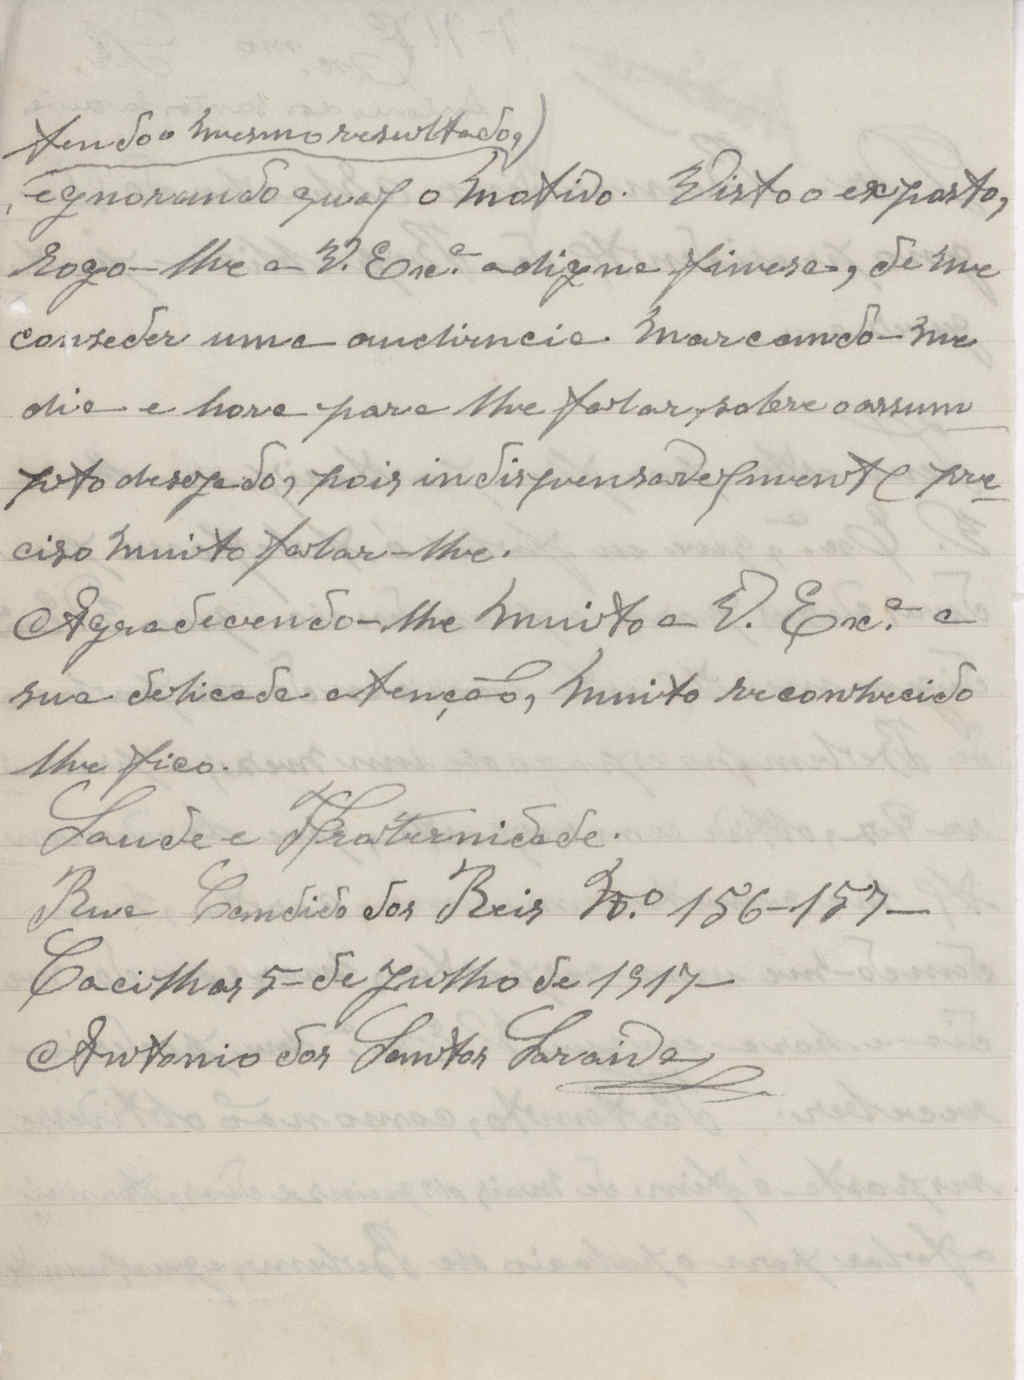 tendo o mesmo resultado,)
egnorando qual o motivo. Visto o exposto,
Rogo-lhe a V. Exª. a digna finesa, de me
conseder uma audiencia. Marcando-me
dia e hora para lhe falar, sobre o assum
pto desejado, pois indispensavelmente pre
ciso muito falar-lhe.
Agradecendo-lhe muito a V. Exª. a
sua delicada atenção, muito reconhecido
lhe fico.
Saude e Fraternidade.
Rua Candido dos Reis Nº. 156-157-
Cacilhas 5- de Julho de 1917-
Antonio dos Santos Saraiva